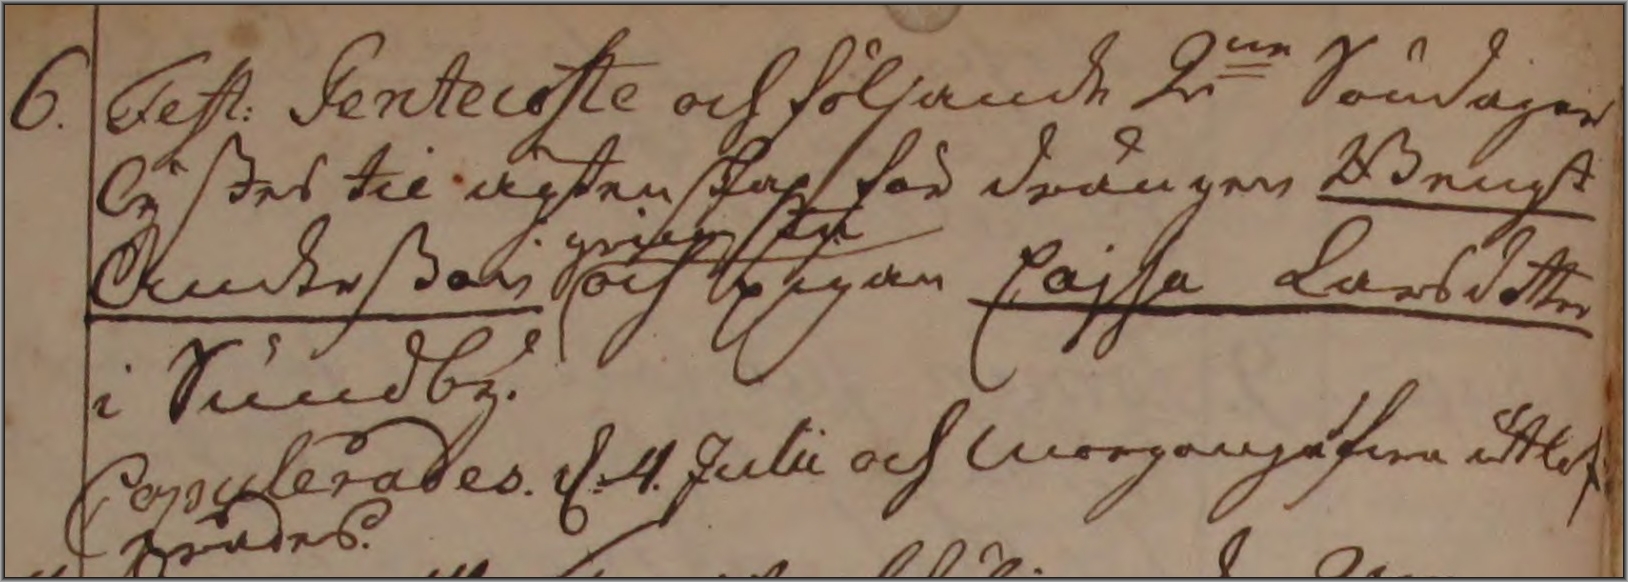 6. Fest: Pentecoste och följande 2ne Söndagar
lystes til ägtenskap för drängen Bengt
i
Andersson och Pigan Cajsa Larsdotter
i Sundby.
Copulerades. d. 4. Julii och morgongåfwan utlof
wades.